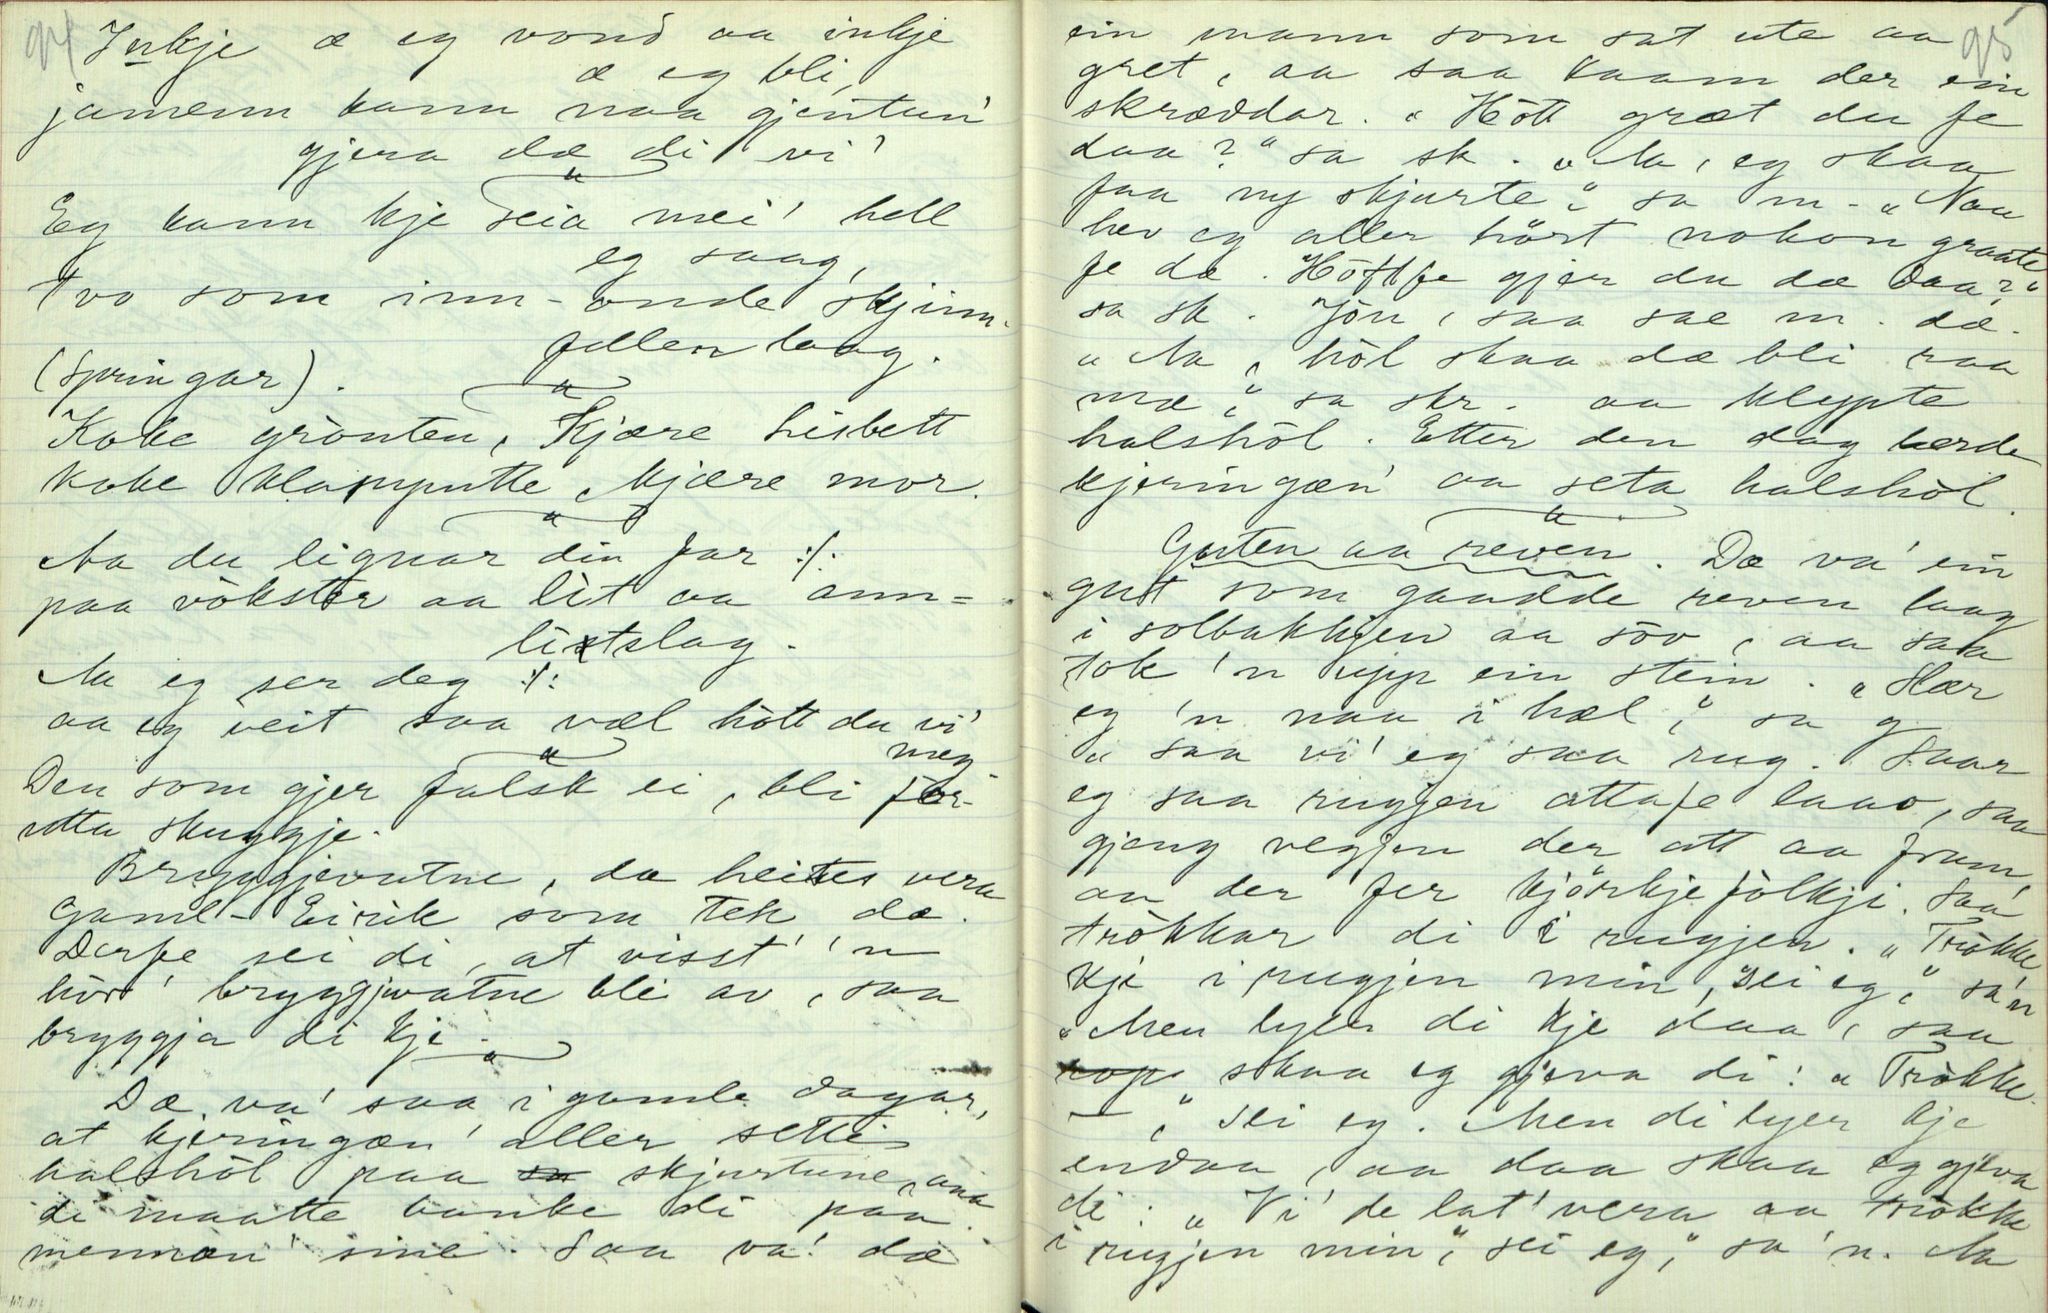 94
Inkje æ eg vond aa inkje
æ eg bli,
jamenn kann naa gjentun'
gjera dæ di vi'
Eg kann kje seia mei' hell
eg saag,
tvo som inn-onde skjinn-
fellen laag.
(Springar).
Koke grònten, kjære Lisbett
koke klampputte, kjære mor.
Aa du lignar din far :/:
paa vòkster aa lit aa ann-
litslag.
Aa eg ser deg :/:
aa eg veit saa væl hòtt du vi'
meg.
Den som gjer falsk ei, bli for-
utta skuggje.
Bryggjevatne, da heites vera
Gaml-Eirik som tek dæ.
Derfe sei di, at visst' 'n
hòr' bryggjevatne bli av, saa
bryggja di kje.
Dæ va' saa i gamle dagar,
at kjeringæn' aller sette
halshòl paa skjurtune, aaa
di maatte banke di paa
mennæn' sine. Saa va' dæ
95
ein mann som sat ute aa
gret, aa saa kaam der ein
skræddar. "Hòtt græt du fe
daa?" sa sk. "Aa, eg skaa
faa ny skjurte," sa m. "Naa
hev eg aller hòrt nokon graate
fe dæ. Hòtt fe gjer du dæ daa?"
sa sk. Jòu, saa sae m. dæ.
"Aa, hòl skaa dæ bli raa
mæ," sa skr. aa klypte
halshòl. Etter den dag lærde
kjeringæn' aa seta halshòl.
Guten aa reven. Dæ va' ein
gut som gaadde reven laag
i solbakkjen aa sòv, aa saa
tok 'n upp ein stein. "Slær
eg 'n naa i hæl," sa g
"saa vi' eg saa rug. Saar
eg saa rugjen attafe laav, saa
gjeng vegjen der att aa fram,
aa der fer kjòrkjefòlkji. Saa
tròkkar di i rugjen. "Tròkke
kje i rugjen min, sei eg," sa'n
"Men lyer di kje daa, saa
skaa eg gjeva di: "Tròkke
—," sei eg. Men di lyer kje
endaa, aa daa skaa eg gjeva
di: "Vi' de lat' vera aa tròkke
i rugjen min," sei eg," sa 'n. Aa